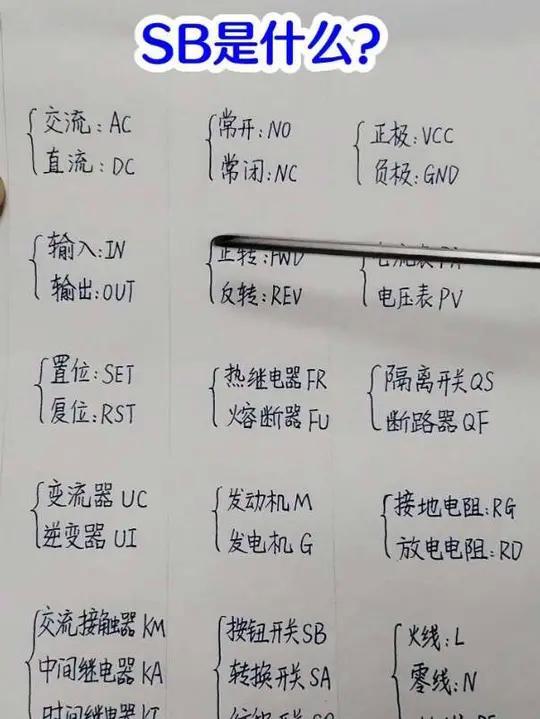 SB是什么?
交流: AC
直流: DC
常开: NO
常闭: NC
正极: VCC
负极: GND
输入: IN
输出: OUT
正转: FWD
反转: REV
电压表 PV
置位: SET
复位: RST
热继电器 FR
熔断器 FU
隔离开关 QS
断路器 QF
变流器 UC
逆变器 UI
发动机 M
发电机 G
接地电阻: RG
放电电阻: RD
交流接触器 KM
中间继电器 KA
时间继电器 KT
按钮开关 SB
转换开关 SA
火线: L
零线: N